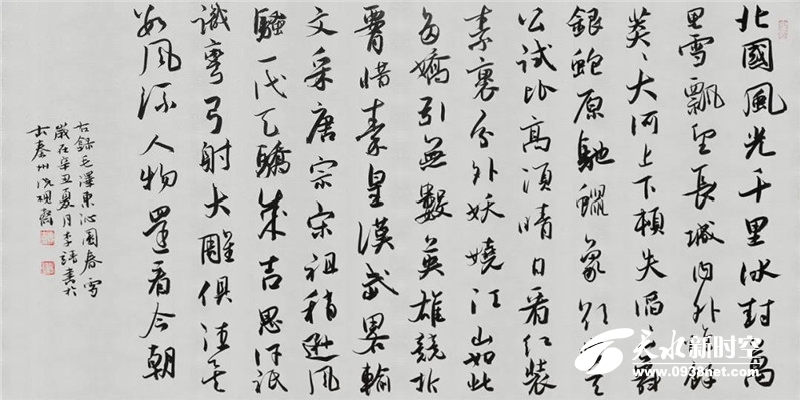 北國風光千里冰封萬
里雪飄望長城内外惟餘
莽、大河上下頓失滔、舞
銀蛇原馳蠟象欲與天
公試比高須晴日看紅裝
素裹分外妖嬈江山如此
多嬌引無數英雄競折
腰惜秦皇漢武略輸
文采唐宗宋祖稍遜風
騷一代天驕成吉思汗祇
識彎弓射大雕俱往矣
數風流人物還看今朝
右錄毛澤東沁園春雪
歲在辛丑夏月李書於
古秦州洗硯齋
天水新时空
www.0938net.com